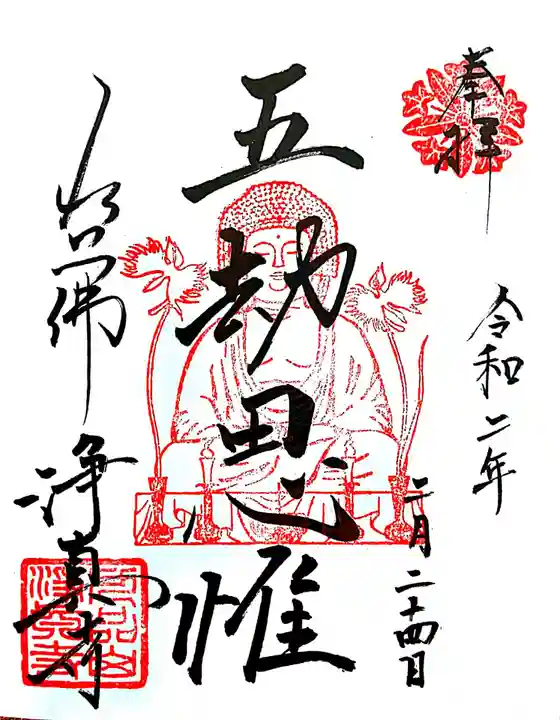 奉拝
令和二年
二月二十四日
五劫思惟
佛
浄真寺